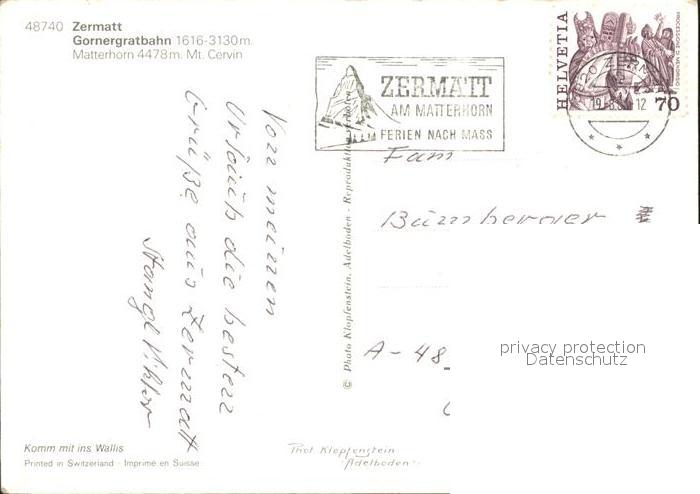 48740 Zermatt
Gornergratbahn 1616-3130m.
Matterhorn 4478m. Mt. Cervin
Von meinen
Urlaub die besten
Grüße aus Zermatt
Stangl Viktor
Komm mit ins Wallis
Printed in Switzerland · Imprimé en Suisse
© Photo Klopfenstein, Adelboden - Reproduktion verboten
Phot. Klopfenstein
Adelboden
ZERMATT
AM MATTERHORN
FERIEN NACH MASS
HELVETIA
70
Fam
Bumberger
A-48
privacy protection
Datenschutz